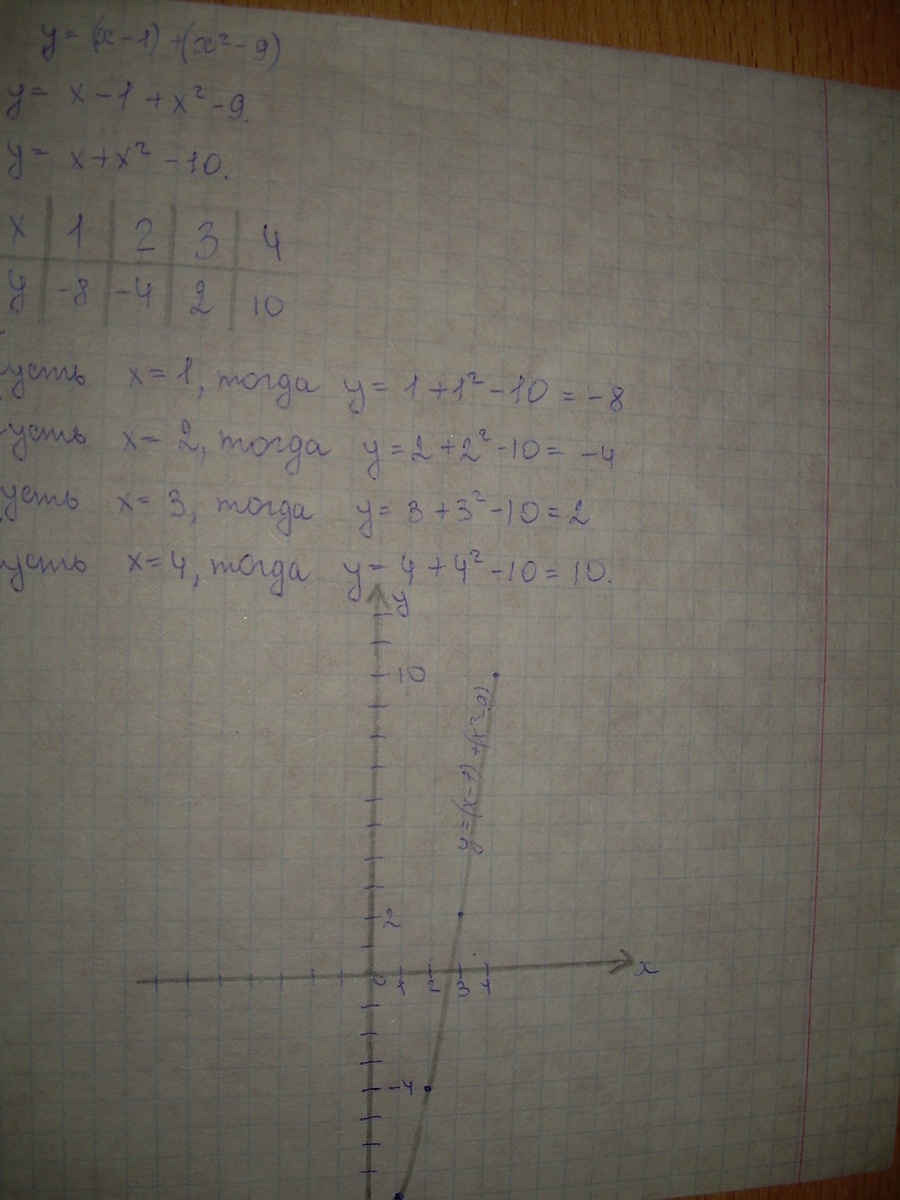 y = (x-1) + (x² - 9)
y = x - 1 + x² - 9.
y = x + x² - 10.
x 1 2 3 4
y -8 -4 2 10
усть x = 1, тогда y = 1 + 1² - 10 = -8
усть x = 2, тогда y = 2 + 2² - 10 = -4
усть x = 3, тогда y = 3 + 3² - 10 = 2
усть x = 4, тогда y = 4 + 4² - 10 = 10.
y
10
y = (x-1) + (x² - 9)
2
x
0 1 2 3 4
-4